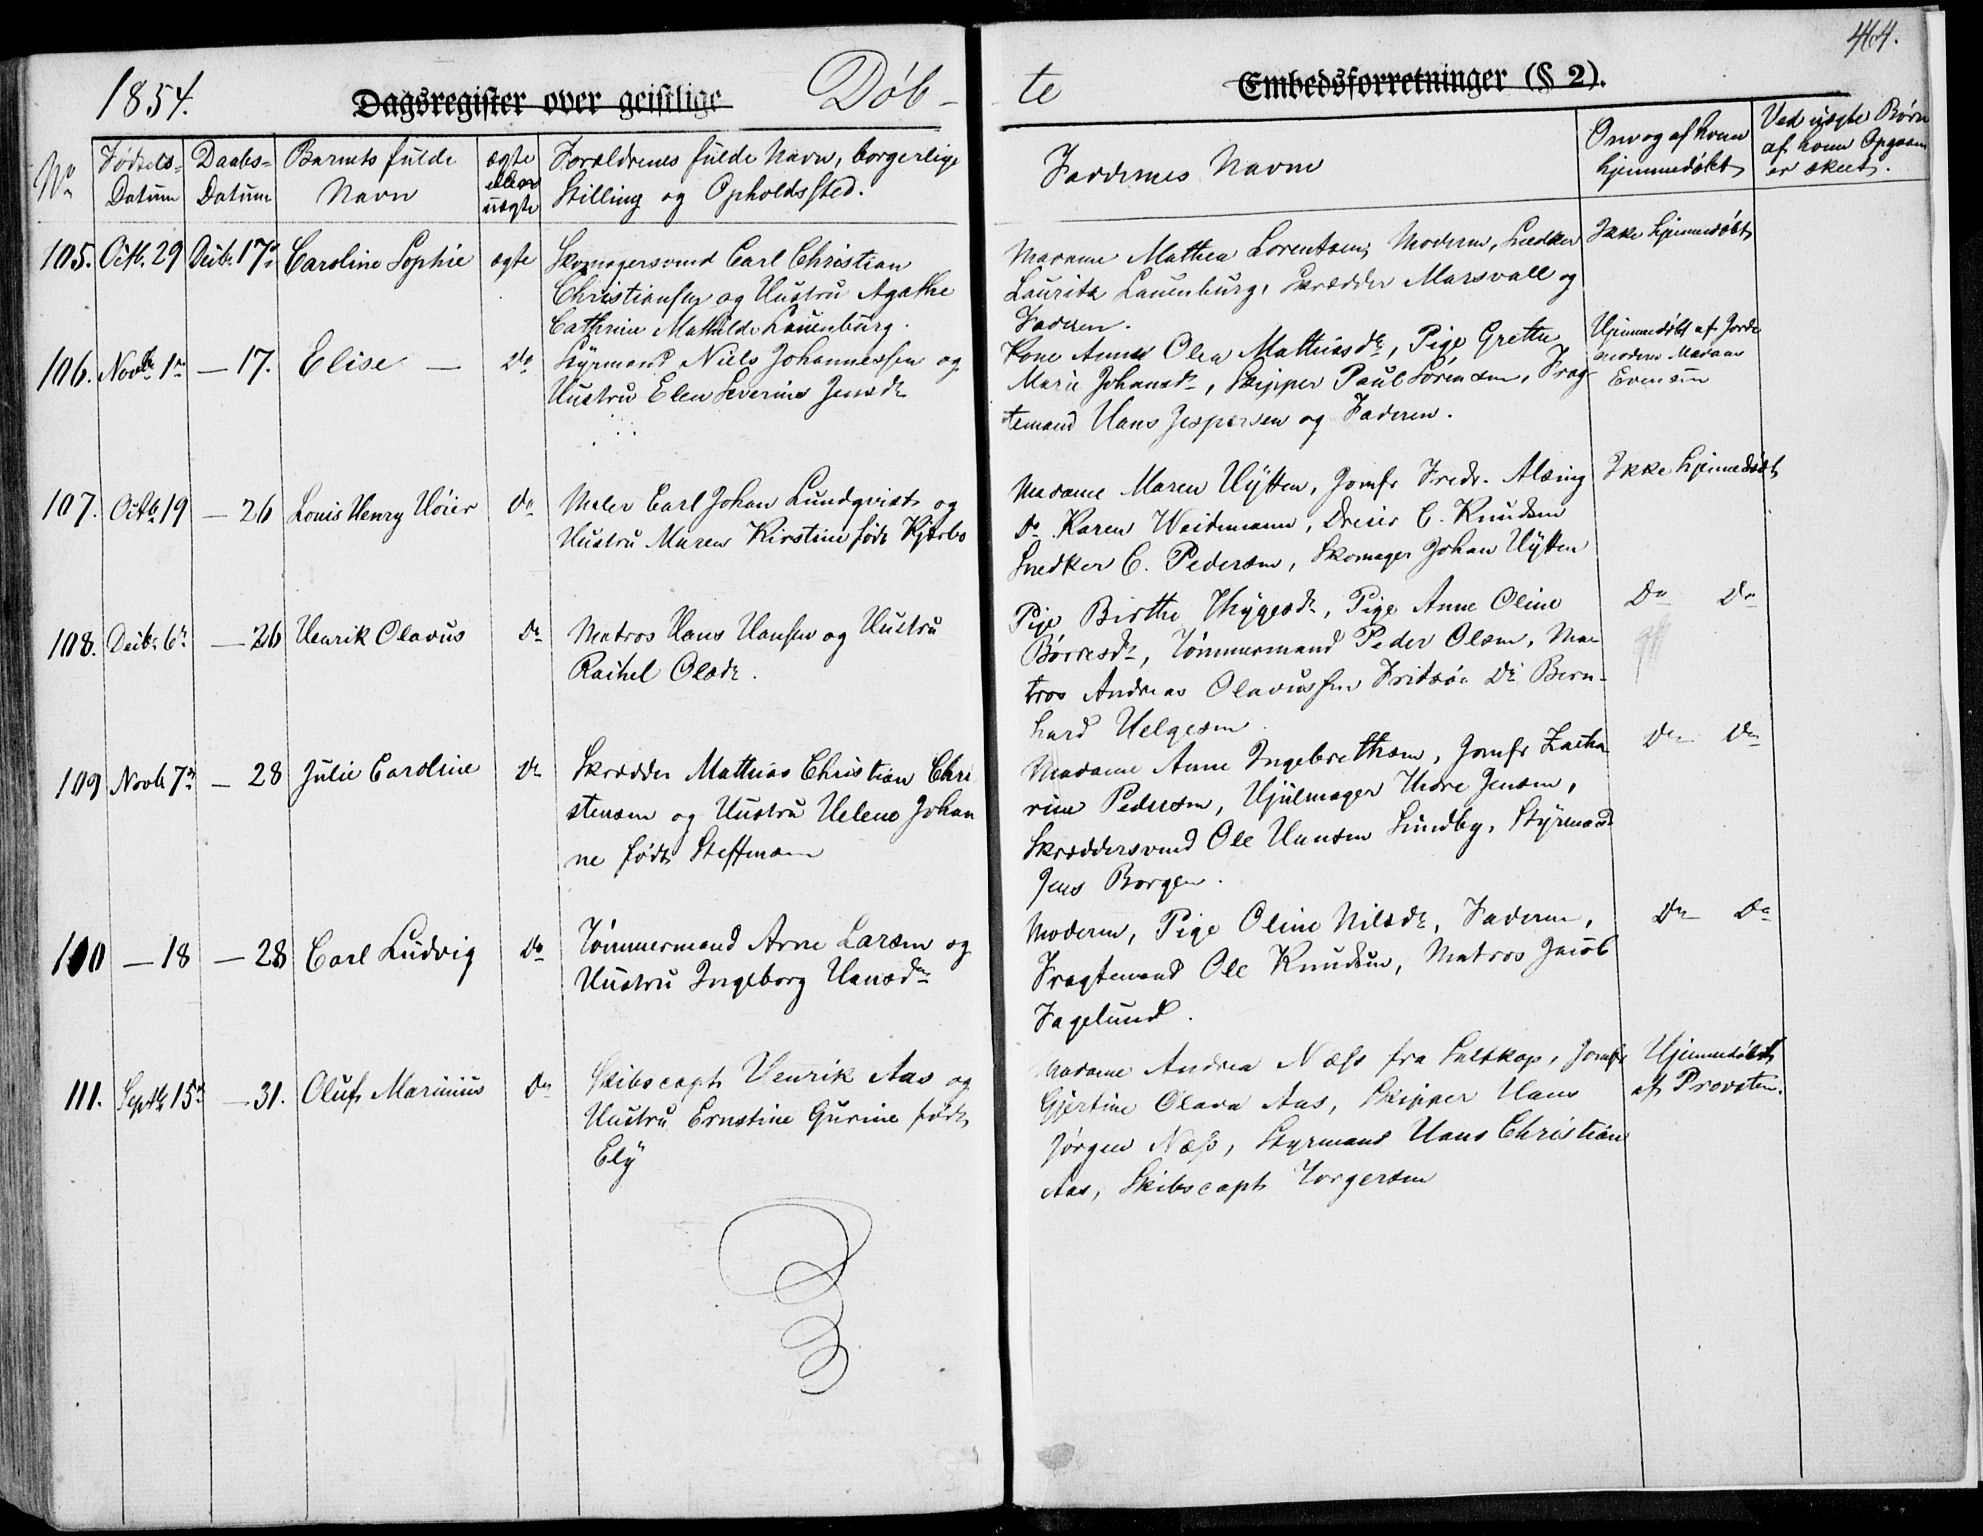 1854.
Dagsregister over geistlige
Døb-
te
Embedsforretninger (§ 2).
464.
No
Fødsels-
Datum
Daabs-
Datum
Barnets fulde
Navn
ægte
eller
uægte
Forældrenes fulde Navn, borgerlige
Stilling og Opholdssted.
Faddernes Navne
Om og af hvem
hjemmedøbt
Ved uægte Børn
af hvem Opgaven
er skeet.
105. Octb. 29 Decb. 17de Caroline Sophie ægte
Skomagersvend Carl Christian
Christiansen og Hustru Agathe
Cathrine Mathilde Lauenburg.
Madame Mathea Lorentsen, Moderen, Snedker
Lauritz Lauenburg, Skrædder Marsvall og
Faderen.
Ikke hjemmedøbt
106. Novbr 1ste — 17. Elise — Do
Styrmand Niels Johannessen og
Hustru Elen Severine Jensdr
Kone Anne Olea Mathiasdr, Pige Grethe
Marie Johansdr, Skipper Paul Sørensen, Frag-
temand Hans Jespersen og Faderen.
Hjemmedøbt af Jorde
moder Madam
Evensen
107. Octbr 19 — 26 Louis Henry Høier Do
Maler Carl Johan Lundqvist og
Hustru Maren Kirstine født Kjerbo
Madame Maren Hytten, Jomfr Fredr. Alsing
Do Karen Weidemann, Dreier C. Knudsen
Snedker C. Pedersen, Skomager Johan Hytten
Ikke hjemmedøbt
108. Decb. 6te — 26 Henrik Olavus Do
Matros Hans Hansen og Hustru
Rachel Olsdr.
Pige Birthe Thygesdr, Pige Anne Oline
Børresdr, Tømmermand Peder Olsen, Ma-
tros Andreas Olavussen Fritsøe Do Bern-
hard Helgesen
Do Do
109 Novb 7de — 28 Julie Caroline Do
Skrædder Mathias Christian Chri
stensen og Hustru Helene Johan
ne født Steffensen
Madame Anne Ingebrethsen, Jomfr Zacha
rine Pedersen, Hjulmager Thore Jensen,
Skræddersvend Ole Hansen Sundby, Styrmand
Jens Borgen.
Do Do
110 — 18 — 28 Carl Ludvig Do
Tømmermand Arne Larsen og
Hustru Ingeborg Hansdr
Moderen, Pige Oline Nilsdr, Faderen,
Fragtemand Ole Knudsen, Matros Jacob
Fagelund.
Do Do
111. Septb 15de — 31. Oluf Marinius Do
Skibscapt Henrik Aas og
Hustru Ernstine Gurine født
Ely
Madame Andrea Næss fra Saltkop, Jomfr
Gjertine Olava Aas, Skipper Hans
Jørgen Næss, Styrmand Hans Christian
Aas, Skibscapt Torgersen
Hjemmedøbt
af Provsten.